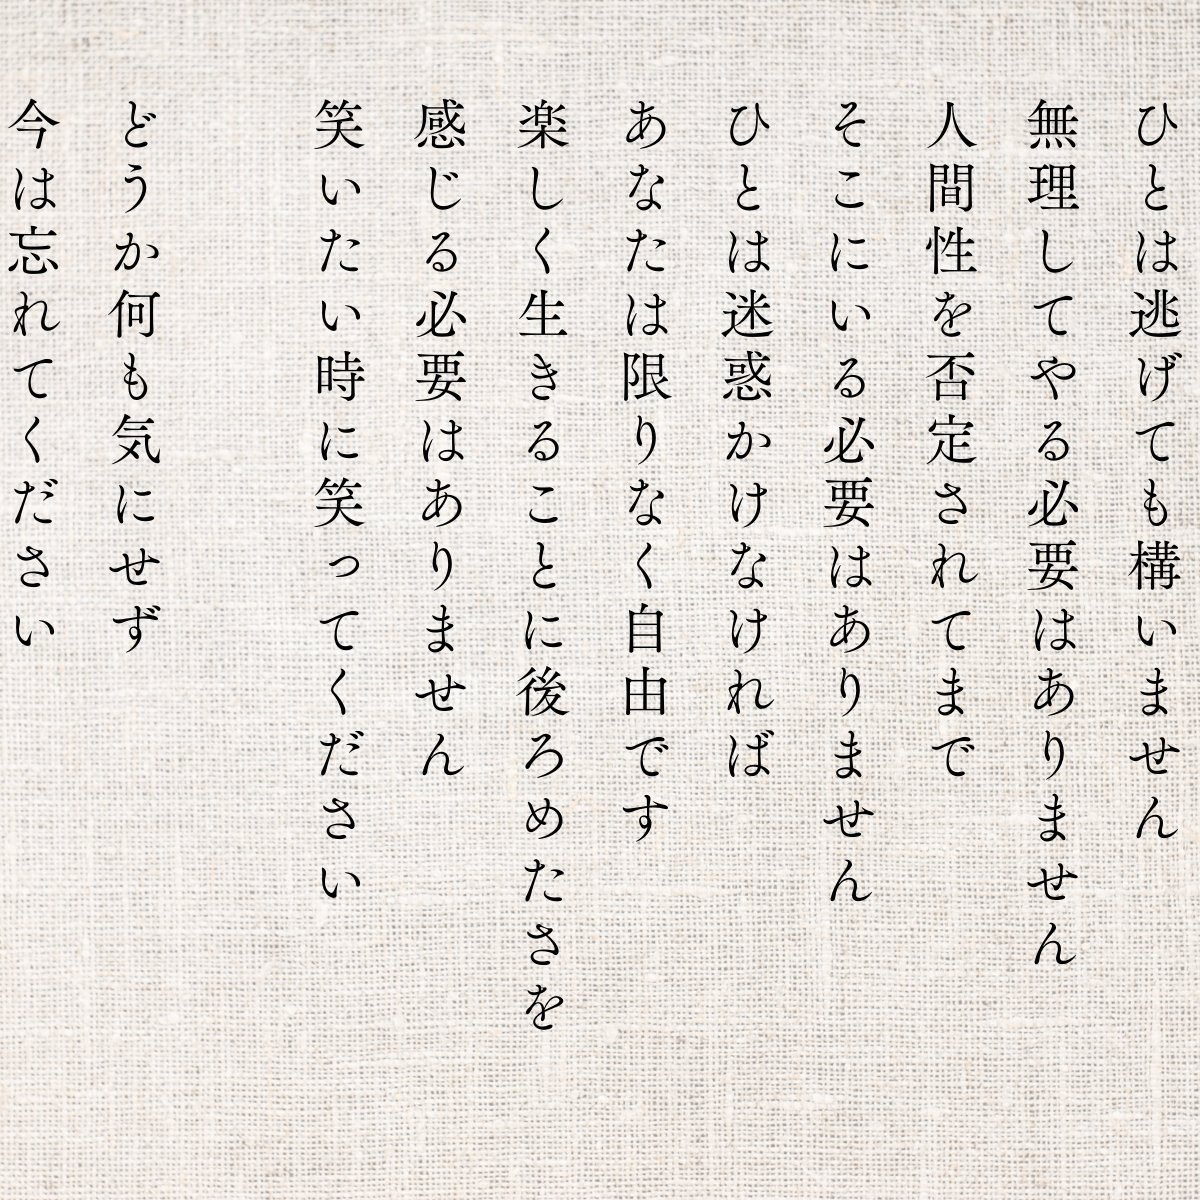 ひとは逃げても構いません
無理してやる必要はありません
人間性を否定されてまで
そこにいる必要はありません
ひとは迷惑かけなければ
あなたは限りなく自由です
楽しく生きることに後ろめたさを
感じる必要はありません
笑いたい時に笑ってください
どうか何も気にせず
今は忘れてください